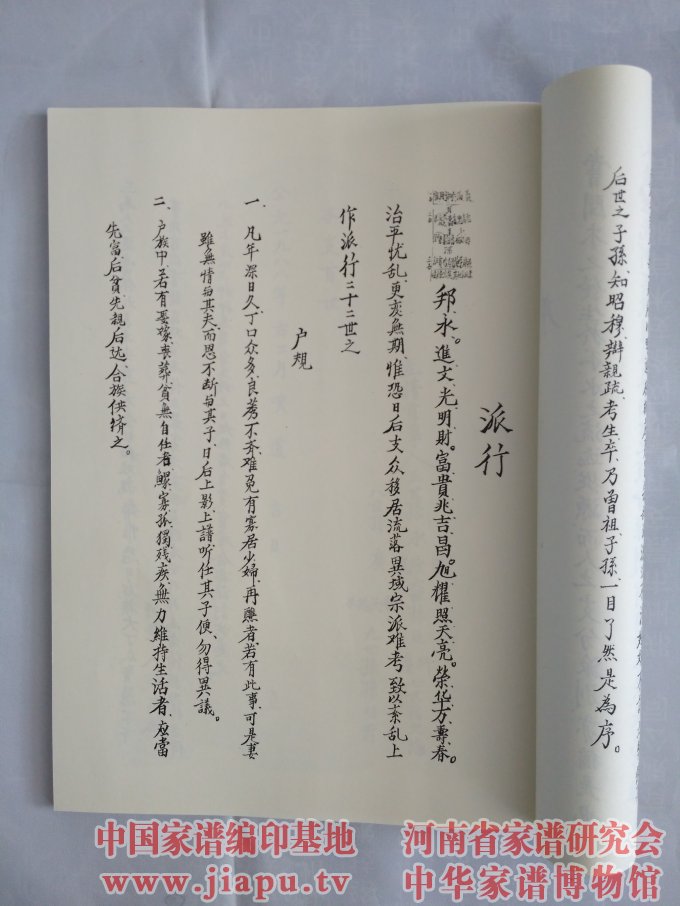 后世之子孫、知昭穆、辨親疏、考生卒、乃曾祖子孫、一目了然是為序。
派行
邦永。進文光明財。富貴兆吉昌。旭耀照天亮。榮华万壽春。
治平忧乱、更变無期、惟恐日后支众移居流落異域宗派难考、致以紊乱上
作派行二十二世之
户規
一、凡年深日久丁口众多、良莠不齐难免有寡居少婦、再醮者、若有此事、可是妻
雖無情与其夫、而恩不断与其子、日后上影上譜听任其子便、勿得異議。
二、户族中若有憂嫁喪葬貧無自任者、鰥寡孤獨残疾、無力維持生活者、应當
先富后貧先親后远、合族供濟之。
中国家谱编印基地 河南省家谱研究会
www.jiapu.tv 中华家谱博物馆